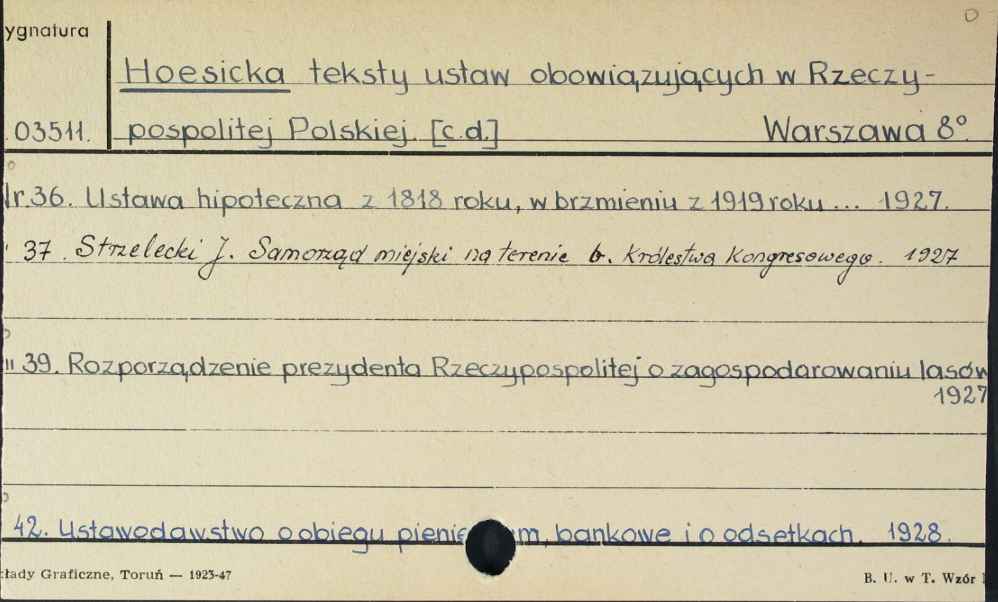 ygnatura
Hoesicka teksty ustaw obowiązujących w Rzeczy-
03511. pospolitej Polskiej. [c.d.] Warszawa 8º.
Nr. 36. Ustawa hipoteczna z 1818 roku, w brzmieniu z 1919 roku ... 1927.
" 37. Strzelecki J. Samorząd miejski na terenie b. Królestwa Kongresowego. 1927
" 39. Rozporządzenie prezydenta Rzeczypospolitej o zagospodarowaniu lasów
1927
42. Ustawodawstwo o obiegu m, bankowe i o odsetkach. 1928.
kłady Graficzne, Toruń — 1923-47
B. U. w T. Wzór